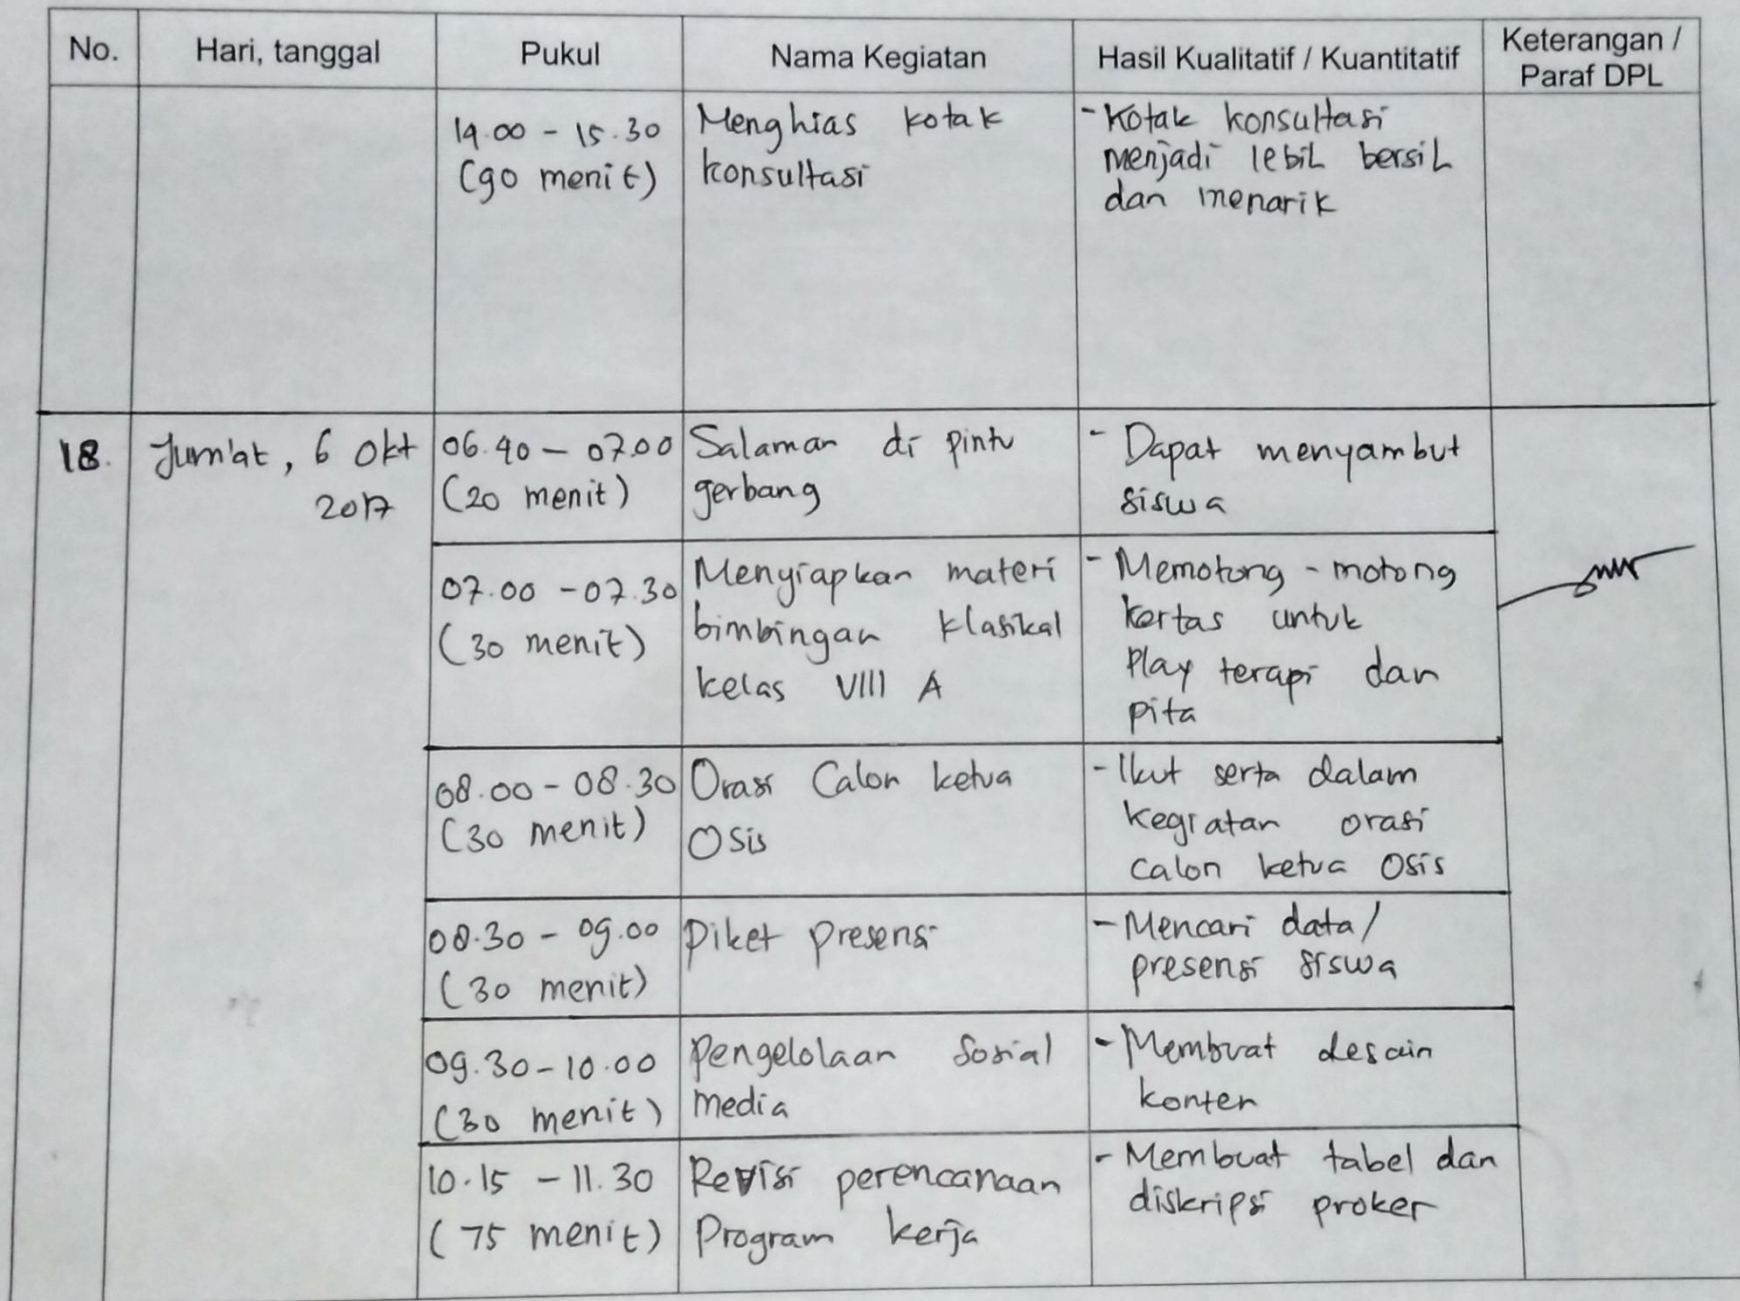 No.
Hari, tanggal
Pukul
Nama Kegiatan
Hasil Kualitatif / Kuantitatif
Keterangan /
Paraf DPL
14.00 - 15.30
(90 menit)
Menghias kotak
konsultasi
- Kotak konsultasi
menjadi lebih bersih
dan menarik
18.
Jum'at, 6 Okt
2017
06.40 - 07.00
(20 menit)
Salaman di pintu
gerbang
- Dapat menyambut
siswa
07.00 - 07.30
(30 menit)
Menyiapkan materi
bimbingan klasikal
kelas VIII A
- Memotong - motong
kertas untuk
Play terapi dan
pita
08.00 - 08.30
(30 menit)
Orasi Calon ketua
Osis
- Ikut serta dalam
kegiatan orasi
calon ketua Osis
08.30 - 09.00
(30 menit)
Piket presensi
- Mencari data/
presensi siswa
09.30 - 10.00
(30 menit)
Pengelolaan Sosial
media
- Membuat desain
konten
10.15 - 11.30
(75 menit)
Revisi perencanaan
Program kerja
- Membuat tabel dan
diskripsi proker